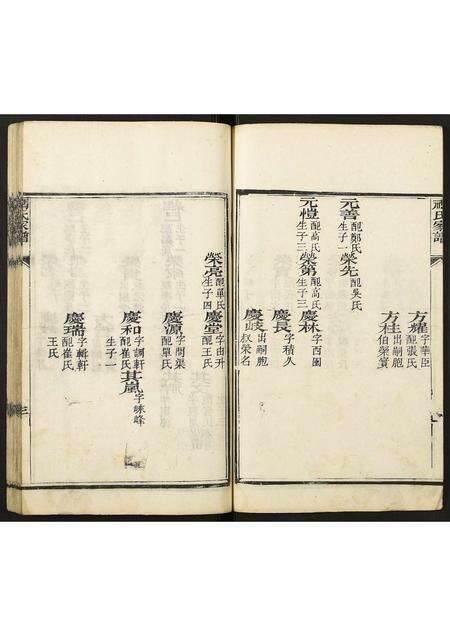 氏家譜
方耀 字華臣 配張氏
方桂 出嗣胞伯榮實
元善 配鄭氏 生子一
榮先 配吳氏
元愷 配高氏 生子三
榮第 配高氏 生子三
慶林 字西園
慶長 字積久
慶岐 出嗣胞叔榮名
榮亮 配單氏 生子四
慶堂 字由升 配王氏
慶源 字問渠 配單氏
慶和 字調軒 配崔氏 生子一
其嵐 字峰
慶瑞 字輯軒 配崔氏 王氏
氏家譜
三